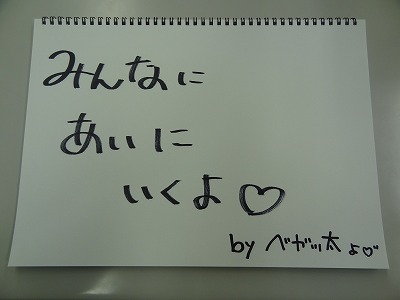 みんなに
あいに
いくよ♡
by べガッ太よ♡